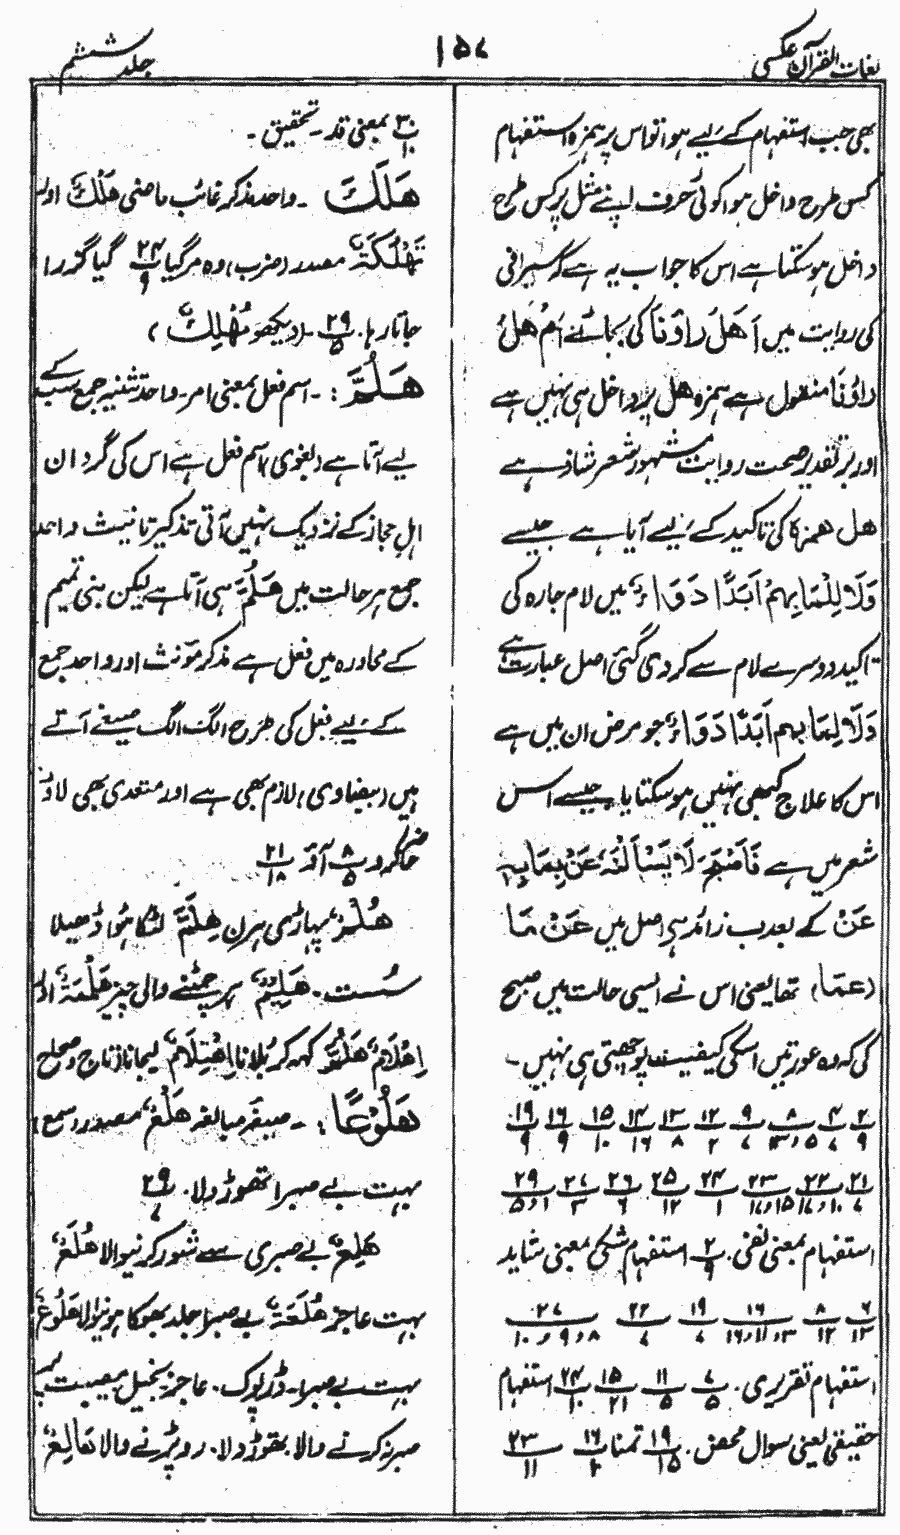 لغات القرآن عکسی
۱۵۷
جلد ششم
بھی جب استفہام کے لیے ہو اتو اس پر ہمزہ استفہام
کس طرح داخل ہوا کوئی حرف اپنے مثل پر کس طرح
داخل ہو سکتا ہے اس کا جواب یہ ہے کہ سیرافی
کی روایت میں اَهَلْ رَاَوْنَا کی بجائے اَمْ هَلْ
راَوْنَا منقول ہے ہمزہ هل پر داخل ہی نہیں ہے
اور بر تقدیر صحت روایت مشہور شعر شاذ ہے
هل همزہ کی تاکید کے لیے آیا ہے جیسے
وَلَا لِلْمَا بِهِمْ اَبَدًا دَوَاءُ میں لام جارہ کی
تاکید دوسرے لام سے کر دی گئی اصل عبارت ہے
وَلَا لِمَا بهم اَبَدًا دَوَاءُ جو مرض ان میں ہے
اس کا علاج کبھی نہیں ہو سکتا یا جیسے اس
شعر میں ہے فَاَصْبَحَ لَا يَسْاَلْنَهٗ عَنْ بِمَا بِهٖ
عَنْ کے بعد ب زائد ہی اصل میں عَنْ مَا
(عمَّا) تھا یعنی اس نے ایسی حالت میں صبح
کی کہ وہ عورتیں اسکی کیفیت پوچھتی ہی نہیں ۔
۲/۹ ۴/۷ ۸/۵ و ۱۳ ۹/۷ ۱۲/۲ ۱۳/۸ ۱۴/۱۶ ۱۵/۱۰ ۱۶/۹ ۱۹/۹
۲۱/۷ ۲۲/۱۰ و ۱۷ ۲۳/۱۵ و ۱۷ ۲۴/۱ ۲۵/۱۲ ۲۶/۶ ۲۷/۳ ۲۹/۱ و ۵
استفہام بمعنی نفی . ۲/۹ استفہام شکی بمعنی شاید
۶/۱۳ ۸/۱۲ ۱۶/۱۳ و ۱۱ و ۱۶ ۱۹/۷ ۲۲/۷ ۲۷/۸ و ۹ و ۱۰
استفہام تقریری . ۷/۵ ۱۱/۵ ۱۵/۲۱ ۲۴/۱۰ استفہام
حقیقی یعنی سوال محض . ۱۹/۱۵ تمنا ۱۶/۴ ۲۳/۱۱
۳۰/۱۰ بمعنی قد ۔ تحقیق ۔
هَلَكَ ۔ واحد مذکر غائب ماضی هَلْكٌ اور
تَهْلُكَةٌ مصدر (ضرب) وہ مر گیا ۲۴/۹ گیا گزرا
جاتا رہا . ۲۹/۵ ۔ (دیکھو مُهْلِكٌ)
هَلُمَّ : ۔ اسم فعل بمعنی امر ۔ واحد تثنیہ جمع سب کے
لیے آتا ہے (لغوی) اسم فعل ہے اس کی گردان
اہل حجاز کے نزدیک نہیں آتی تذکیر تانیث واحد
جمع ہر حالت میں هَلُمَّ ہی آتا ہے لیکن بنی تمیم
کے محاورہ میں فعل ہے مذکر مونث اور واحد جمع
کے لیے فعل کی طرح الگ الگ صیغے آتے
ہیں (بیضاوی) لازم بھی ہے اور متعدی بھی لاؤ
حاضر کرو ۸/۵ آؤ ۲۱/۱۸
هُلْمٌ پہاڑی ہرن هِلَمٌّ لٹکا ہوا ڈھیلا
سُست . هَلِيْمٌ ہر چمٹنے والی چیز هَلْمَةٌ اور
اِهْلَامٌ هَلُمَّ کہہ کر بلانا اِهْتِلَامٌ لیجانا (تاج وصحاح
هَلُوْعًا : ۔ صیغہ مبالغہ هَلْعٌ مصدر (سمع)
بہت بے صبرا تھوڑ دلا . ۲۹/۷
هَلِعٌ بے صبری سے شور کرنیوالا هُلَعٌ
بہت عاجز هُلَعَةٌ بے صبرا جلد بھوکا ہونیوالا هَلُوْعٌ
بہت بے صبرا ۔ ڈرپوک . عاجز بخیل مصیبت پر
صبر نہ کرنے والا . تھوڑ دلا . رو پڑنے والا هَالِعٌ